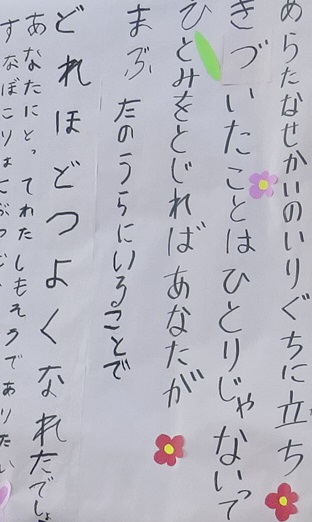 あらたなせかいのいりぐちに立ち
きづいたことはひとりじゃないって
ひとみをとじればあなたが
まぶたのうらにいることで
どれほどつよくなれたでしょ
あなたにとってわたしもそうでありたい
すなぼこり